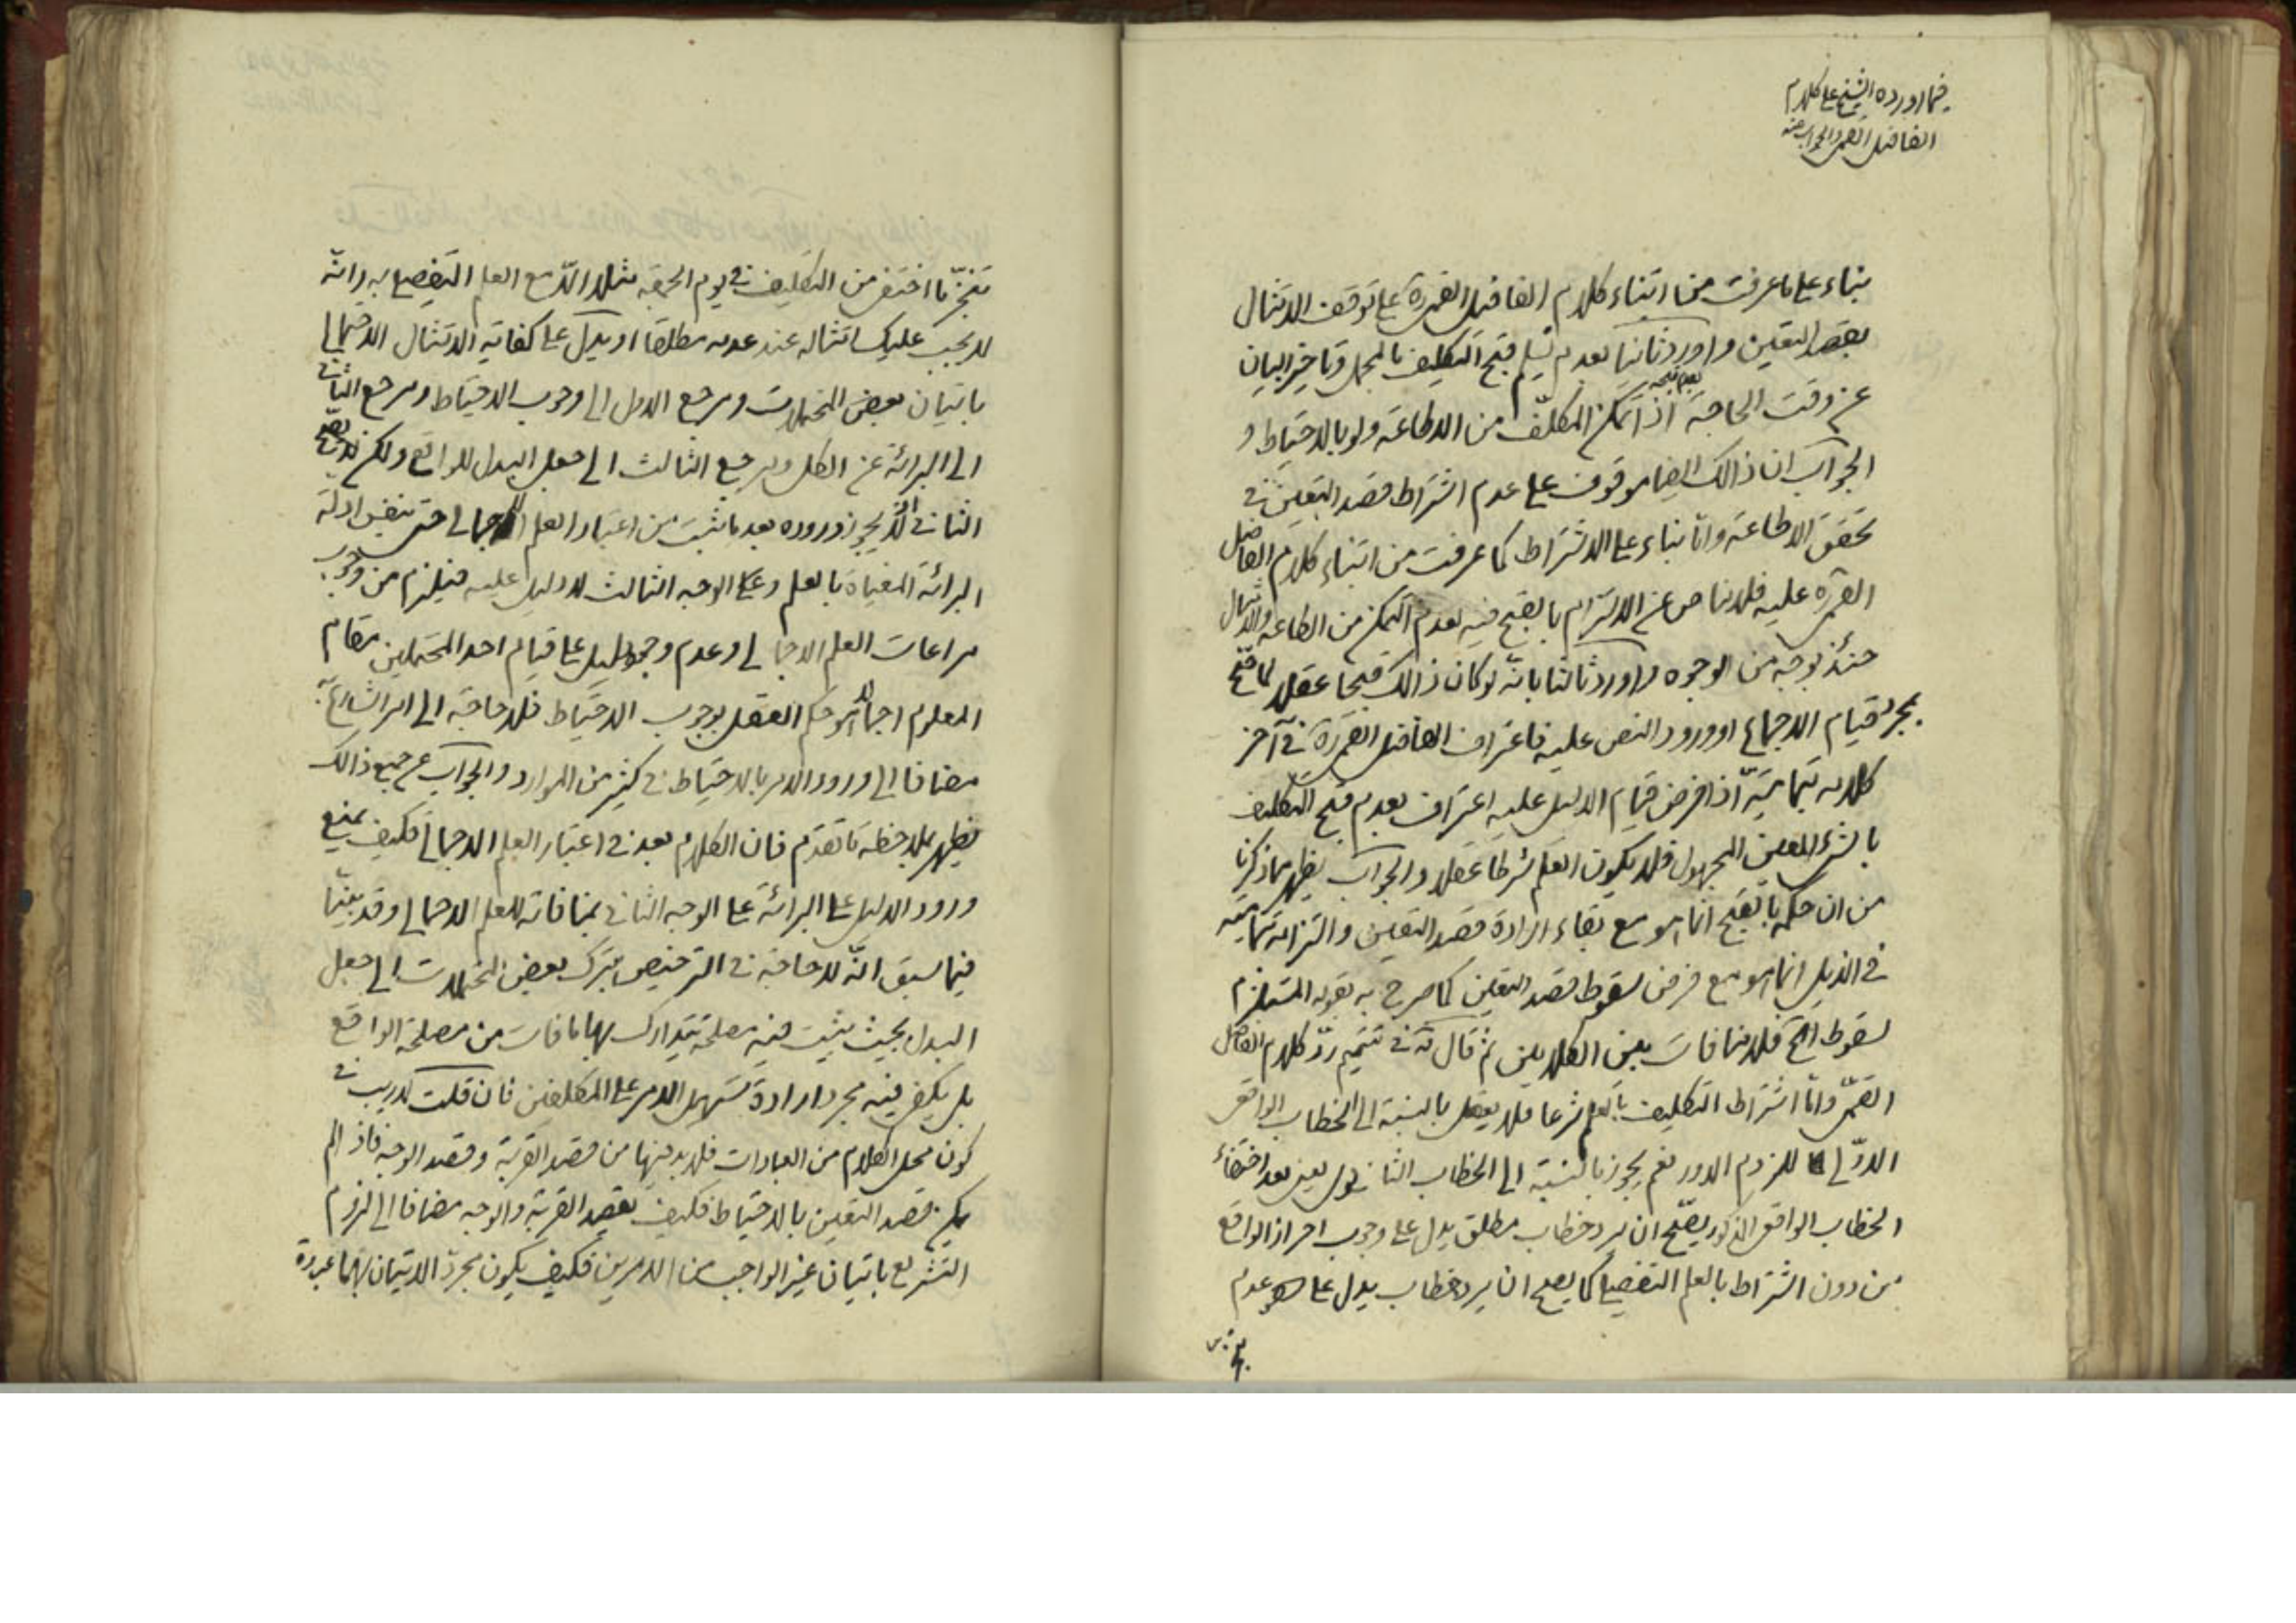 فيما اورده الشيخ على كلام
الفاضل القمى والجواب عنه
بناء على ما عرفت من ابتناء كلام الفاضل القمى ره على توقف الامتثال
بقصد التعيين واورد ثانيا بعدم تسليم قبح التكليف بالمجمل وتاخير البيان
عن وقت الحاجة اذا تمكن المكلف من الاطاعة ولو بالاحتياط و
الجواب ان ذالك ايضا موقوف على عدم اشتراط قصد التعيين فى
تحقق الاطاعة واما بناء على الاشتراط كما عرفت من ابتناء كلام الفاضل
القمى ره عليه فلا مناص عن الالتزام بالقبح فيه لعدم التمكن من الطاعة والامتثال
حينئذ بوجه من الوجوه واورد ثالثا بانه لو كان ذالك قبيحا عقلا لما صح
بمجرد قيام الاجماع او ورود النص عليه فاعتراف الفاضل القمى ره فى آخر
كلامه بتماميته اذا فرض قيام الدليل عليه اعتراف بعدم قبح التكليف
بالشئ المعين المجهول فلا يكون العلم شرطا عقلا والجواب يظهر مما ذكرنا
من ان حكمه بالقبح انما هو مع بقاء ارادة قصد التعيين والتزامه بتماميته
فى الذيل انما هو مع فرض سقوط قصد التعيين كما صرح به بقوله المستلزم
لسقوط الخ فلا منافات بين الكلامين ثم قال ره فى تتميم رد كلام الفاضل
القمى واما اشتراط التكليف بالعلم شرعا فلا يعقل بالنسبة الى الخطاب الواقعى
الاولى للزوم الدور نعم يجوز بالنسبة الى الخطاب الثانوى يعنى بعد اختفاء
الخطاب الواقعى المذكور يصح ان يرد خطاب مطلق يدل على وجوب احراز الواقع
من دون اشتراط بالعلم التفصيلى كما يصح ان يرد خطاب يدل على عدم
تنجز ما اختفى من التكليف فى يوم الجمعة مثلا الا مع العلم التفصيلى به وانه
لا يجب عليك امتثاله عند عدمه مطلقا او يدل على كفاية الامتثال الاحتمالى
باتيان بعض المحتملات ومرجع الاول الى وجوب الاحتياط ومرجع الثانى
الى البرائة عن الكل ومرجع الثالث الى جعل البدل للواقع ولكن
الثانى لا يجوز وروده بعد ما ثبت من اعتبار العلم الاجمالى حتى بنفس ادلة
البرائة المغياة بالعلم وعلى الوجه الثالث لا دليل عليه فيلزم من وجوب
مراعات العلم الاجمالى وعدم وجود دليل على قيام احد المحتملين مقام
المعلوم اجمالا هو حكم العقل بوجوب الاحتياط فلا حاجة الى امر الشارع به
مضافا الى ورود الامر بالاحتياط فى كثير من الموارد والجواب عن جميع ذالك
يظهر بملاحظة ما تقدم فان الكلام بعد فى اعتبار العلم الاجمالى فكيف يمنع
ورود الدليل على البرائة على الوجه الثانى بمنافاته للعلم الاجمالى وقد بينا
فيما سبق انه لا حاجة فى الترخيص بترك بعض المحتملات الى جعل
البدل بحيث يثبت فيه مصلحة يتدارك بها ما فات من مصلحة الواقع
بل يكفى فيه مجرد ارادة تسهيل الامر على المكلفين فان قلت لا ريب فى
كون محل الكلام من العبادات فلا بد فيها من قصد القربة وقصد الوجه فاذا لم
يكن قصد التعيين بالاحتياط فكيف بقصد القربة والوجه مضافا الى لزوم
التشريع باتيان غير الواجب من الامرين فكيف يكون مجرد الاتيان بهما عبادة